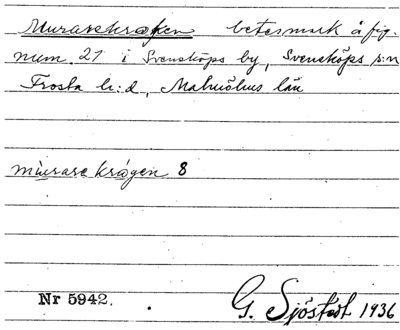 Murarekroken betesmark å fig.
num. 21 i Svensköps by, Svensköps s:n
Frosta h:d, Malmöhus län
mùrarekrógen 8
Nr 5942. G. Sjöstedt 1936